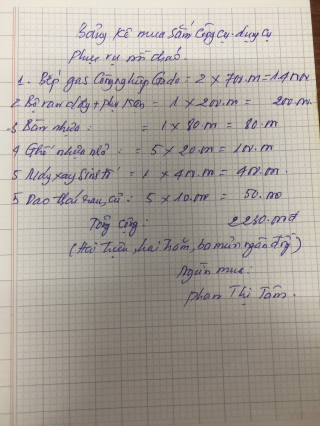 Bảng kê mua sắm công cụ - dụng cụ
phục vụ
1. Bếp gas Công nghiệp = 2 x 700.m = 1400.000
2 = 1 x 200.m = 200.m
3 Bàn nhựa : = 1 x 80.m = 80.m
4 Ghế nhựa nhỏ : = 5 x 20.m = 100.m
5 Máy xay sinh tố = 1 x 400.m = 400.m.
5 Dao thái rau, củ : 5 x 10.000 = 50.000
Tổng cộng : 2230.000đ
(Hai triệu, hai trăm, ba mươi ngàn đồng)
Người mua :
phan Thị Tâm .